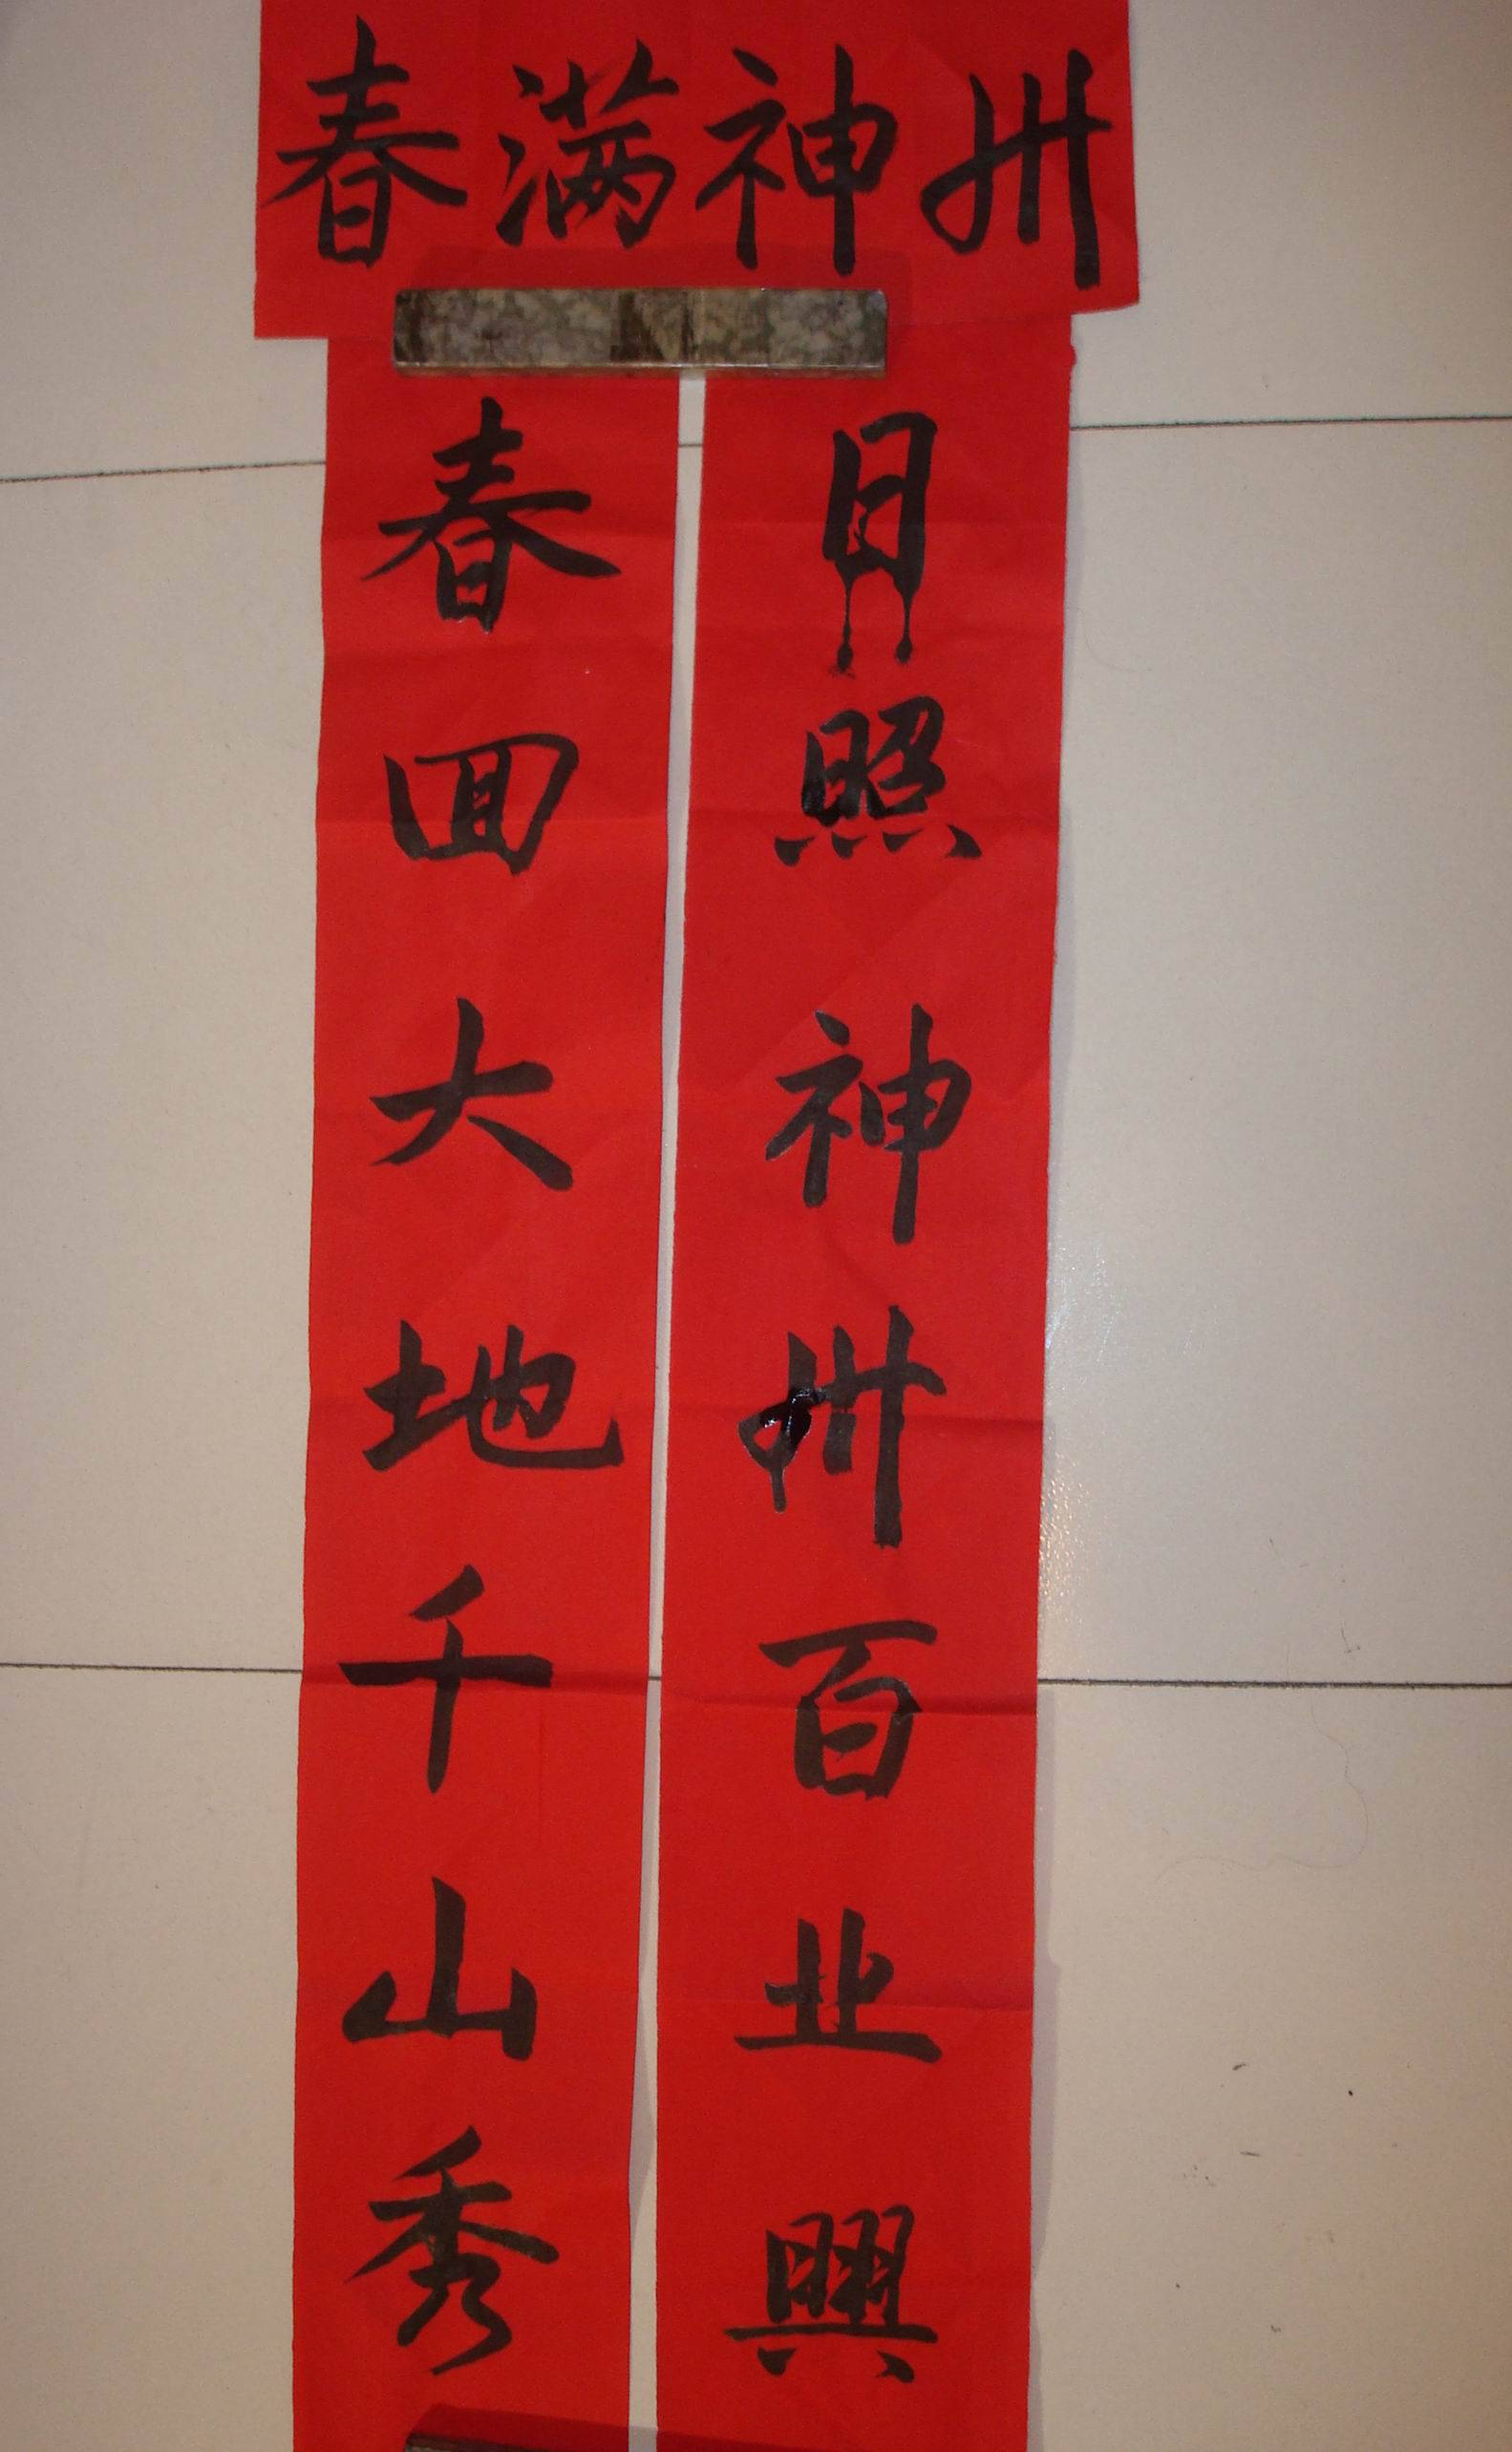 春满神州
春回大地千山秀
日照神州百业興